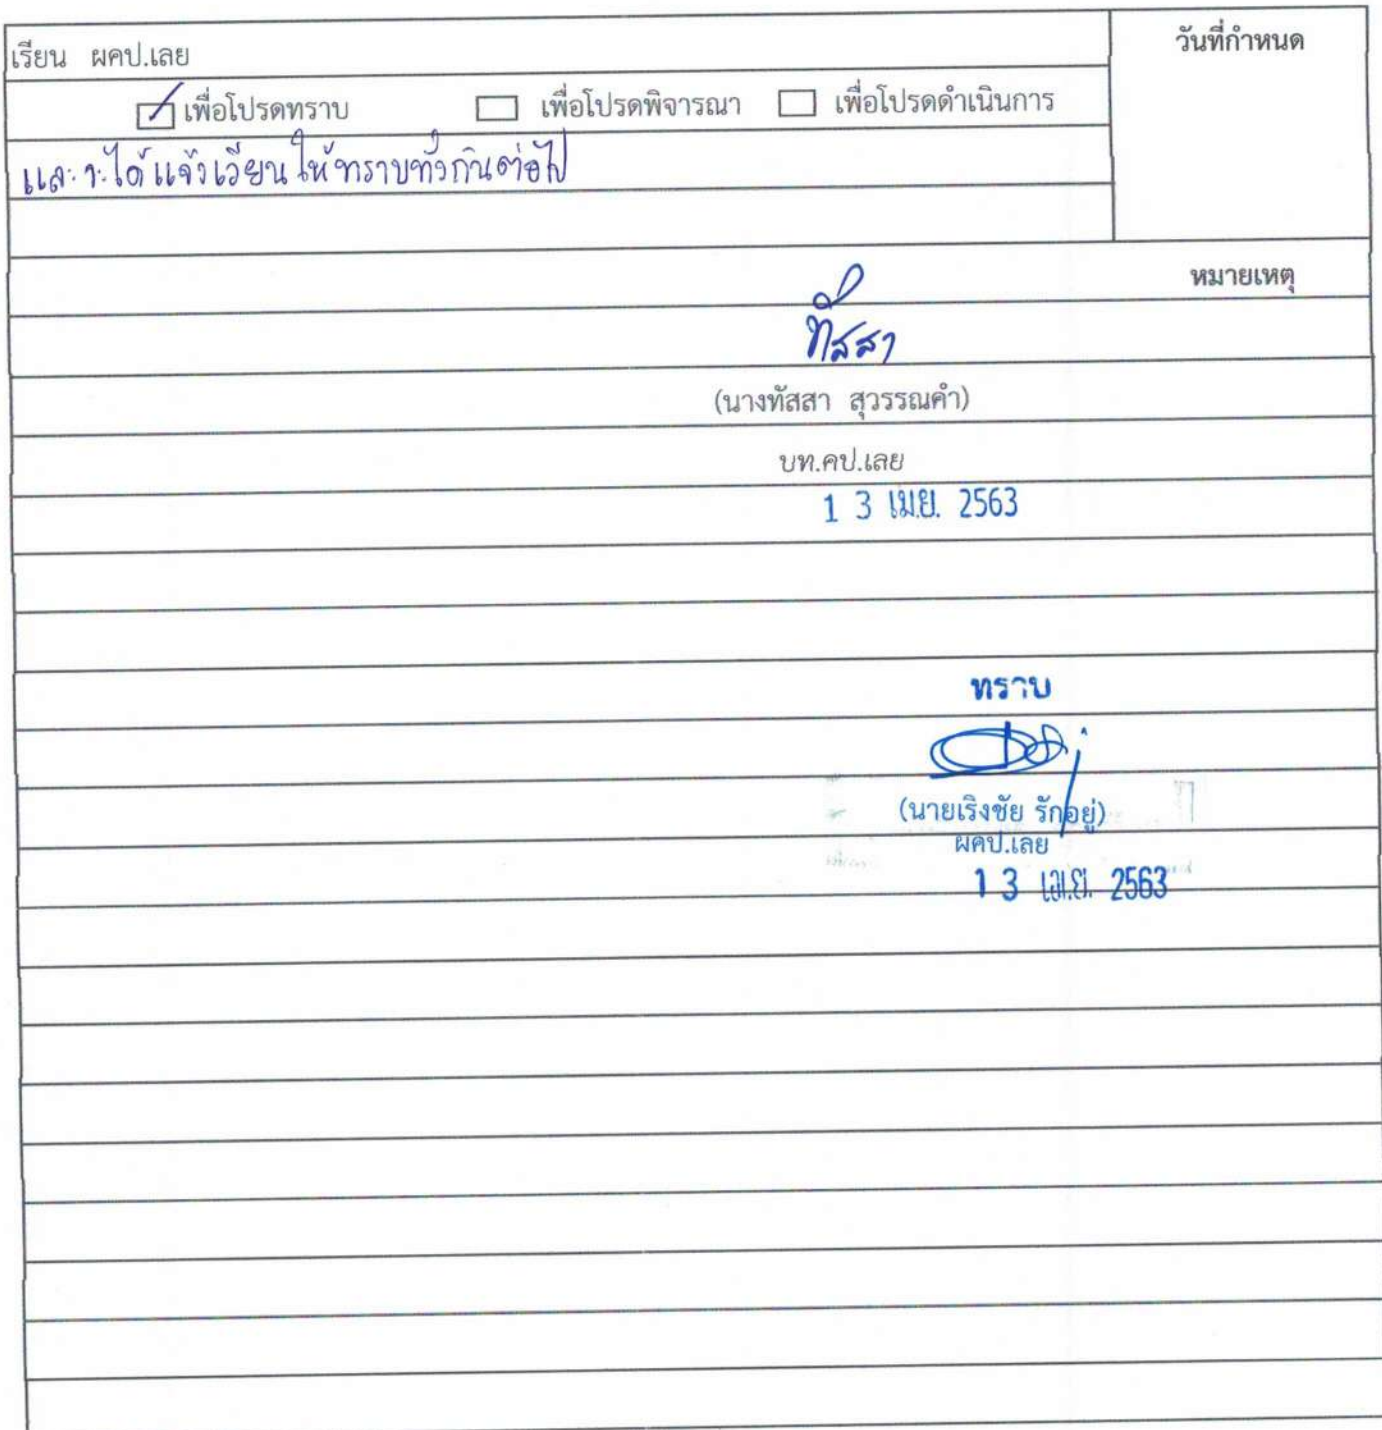 เรียน ผคป.เลย
วันที่กำหนด
เพื่อโปรดทราบ เพื่อโปรดพิจารณา เพื่อโปรดดำเนินการ
และจะได้แจ้งเวียนให้ทราบทั่วกันต่อไป
หมายเหตุ
ทัสสา
(นางทัสสา สุวรรณคำ)
บท.คป.เลย
1 3 เม.ย. 2563
ทราบ
(นายเริงชัย รักอยู่)
ผคป.เลย
1 3 เม.ย. 2563